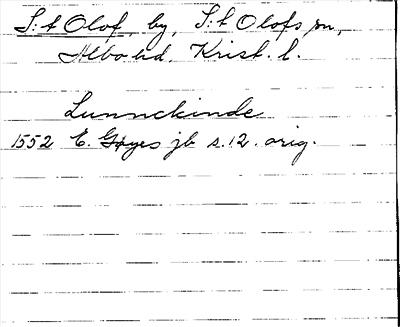 S:t Olof, by, S:t Olofs sn,
Albo hd. Krist. l.
Lunnekinde
1552 E. Gøyes jb s. 12. orig.